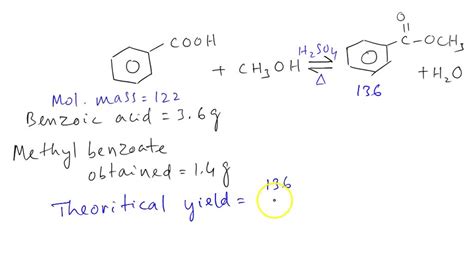 COOH
+ CH3OH
H2SO4
Δ
O
C
OCH3
+ H2O
Mol. mass = 122
136
Benzoic acid = 3.6g
Methyl benzoate
obtained = 1.4g
Theoritical yield = 136